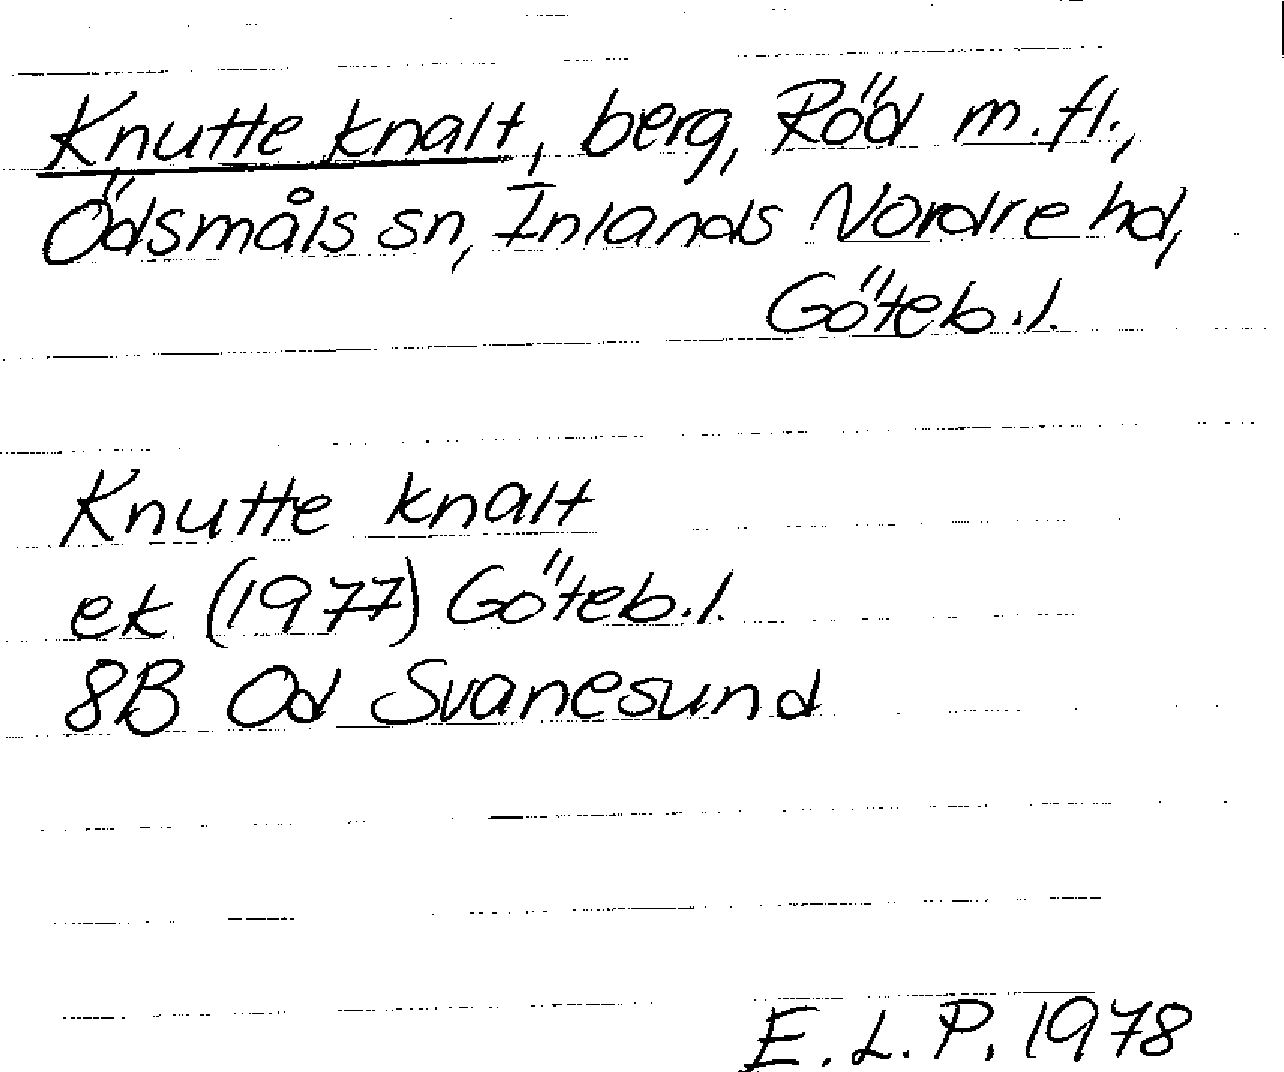 Knutte knalt, berg, Röd m.fl.,
Ödsmåls sn, Inlands Nordre hd,
Göteb.l.
Knutte knalt
ek (1977) Göteb.l.
8B Od Svanesund
E.L.P. 1978